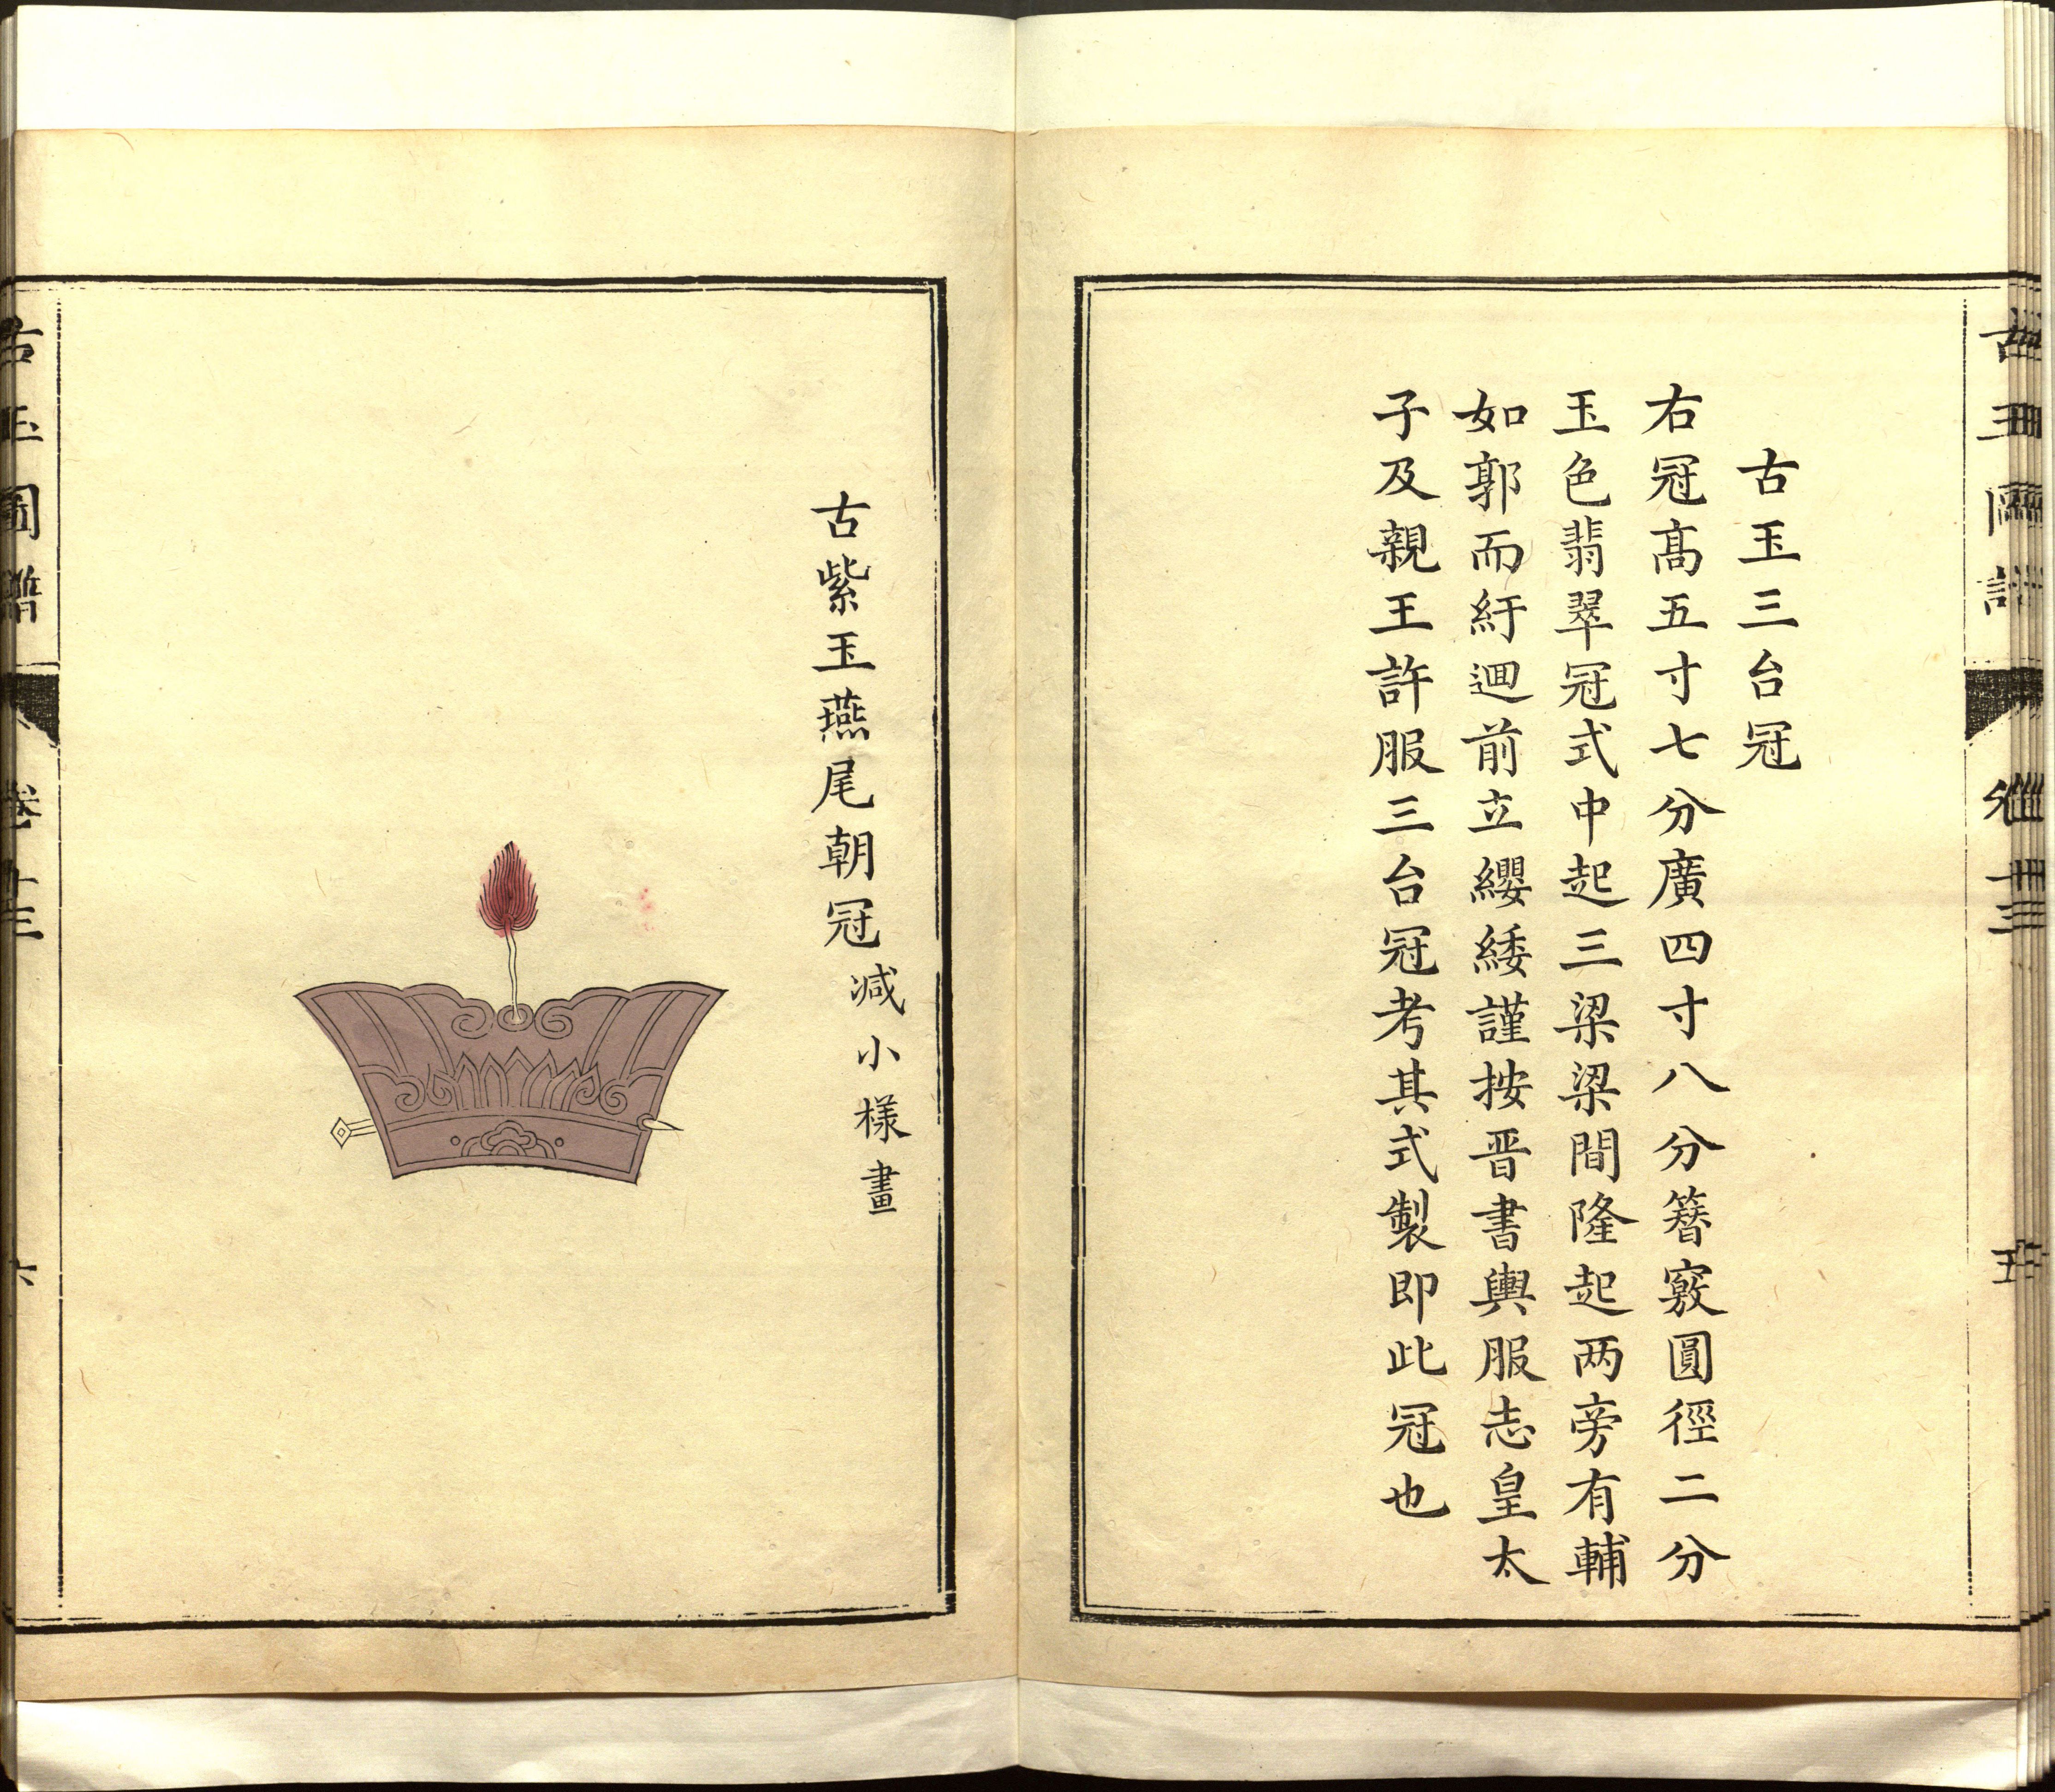 古玉三台冠
右冠髙五寸七分廣四寸八分簪竅圓徑二分
玉色翡翠冠式中起三梁梁間隆起两旁有輔
如郭而紆迴前立纓緌謹按晋書輿服志皇太
子及親王許服三台冠考其式製即此冠也
古紫玉燕尾朝冠减小樣畫
古玉圖譜 卷十三 六